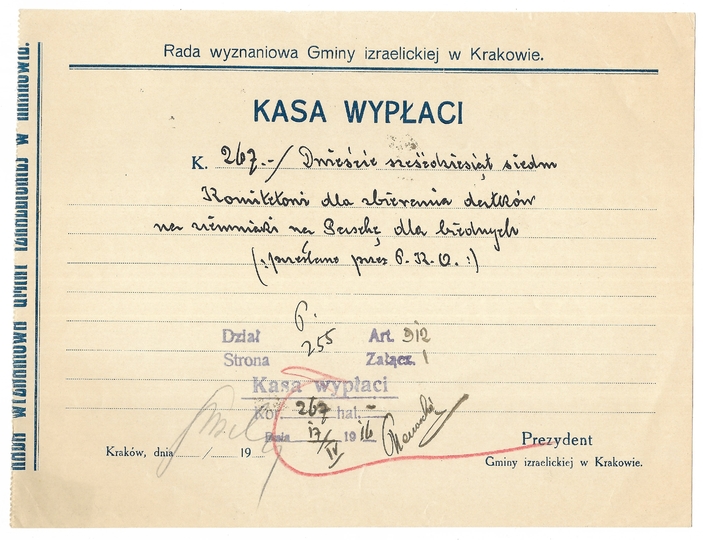 Rada wyznaniowa Gminy izraelickiej w Krakowie.
KASA WYPŁACI
K. 267.-/ Dwieście sześćdziesiąt siedm
Komitetowi dla zbierania datków
na ziemniaki na Paschę dla biednych
(: przesłano przez P. K. O. :)
Dział 6. Art. 312
Strona 255 Załącz. 1
Kasa wypłaci
Kor. 267 hal. -
Dnia 17/IV 1916
Kraków, dnia / 19
Prezydent
Gminy izraelickiej w Krakowie.